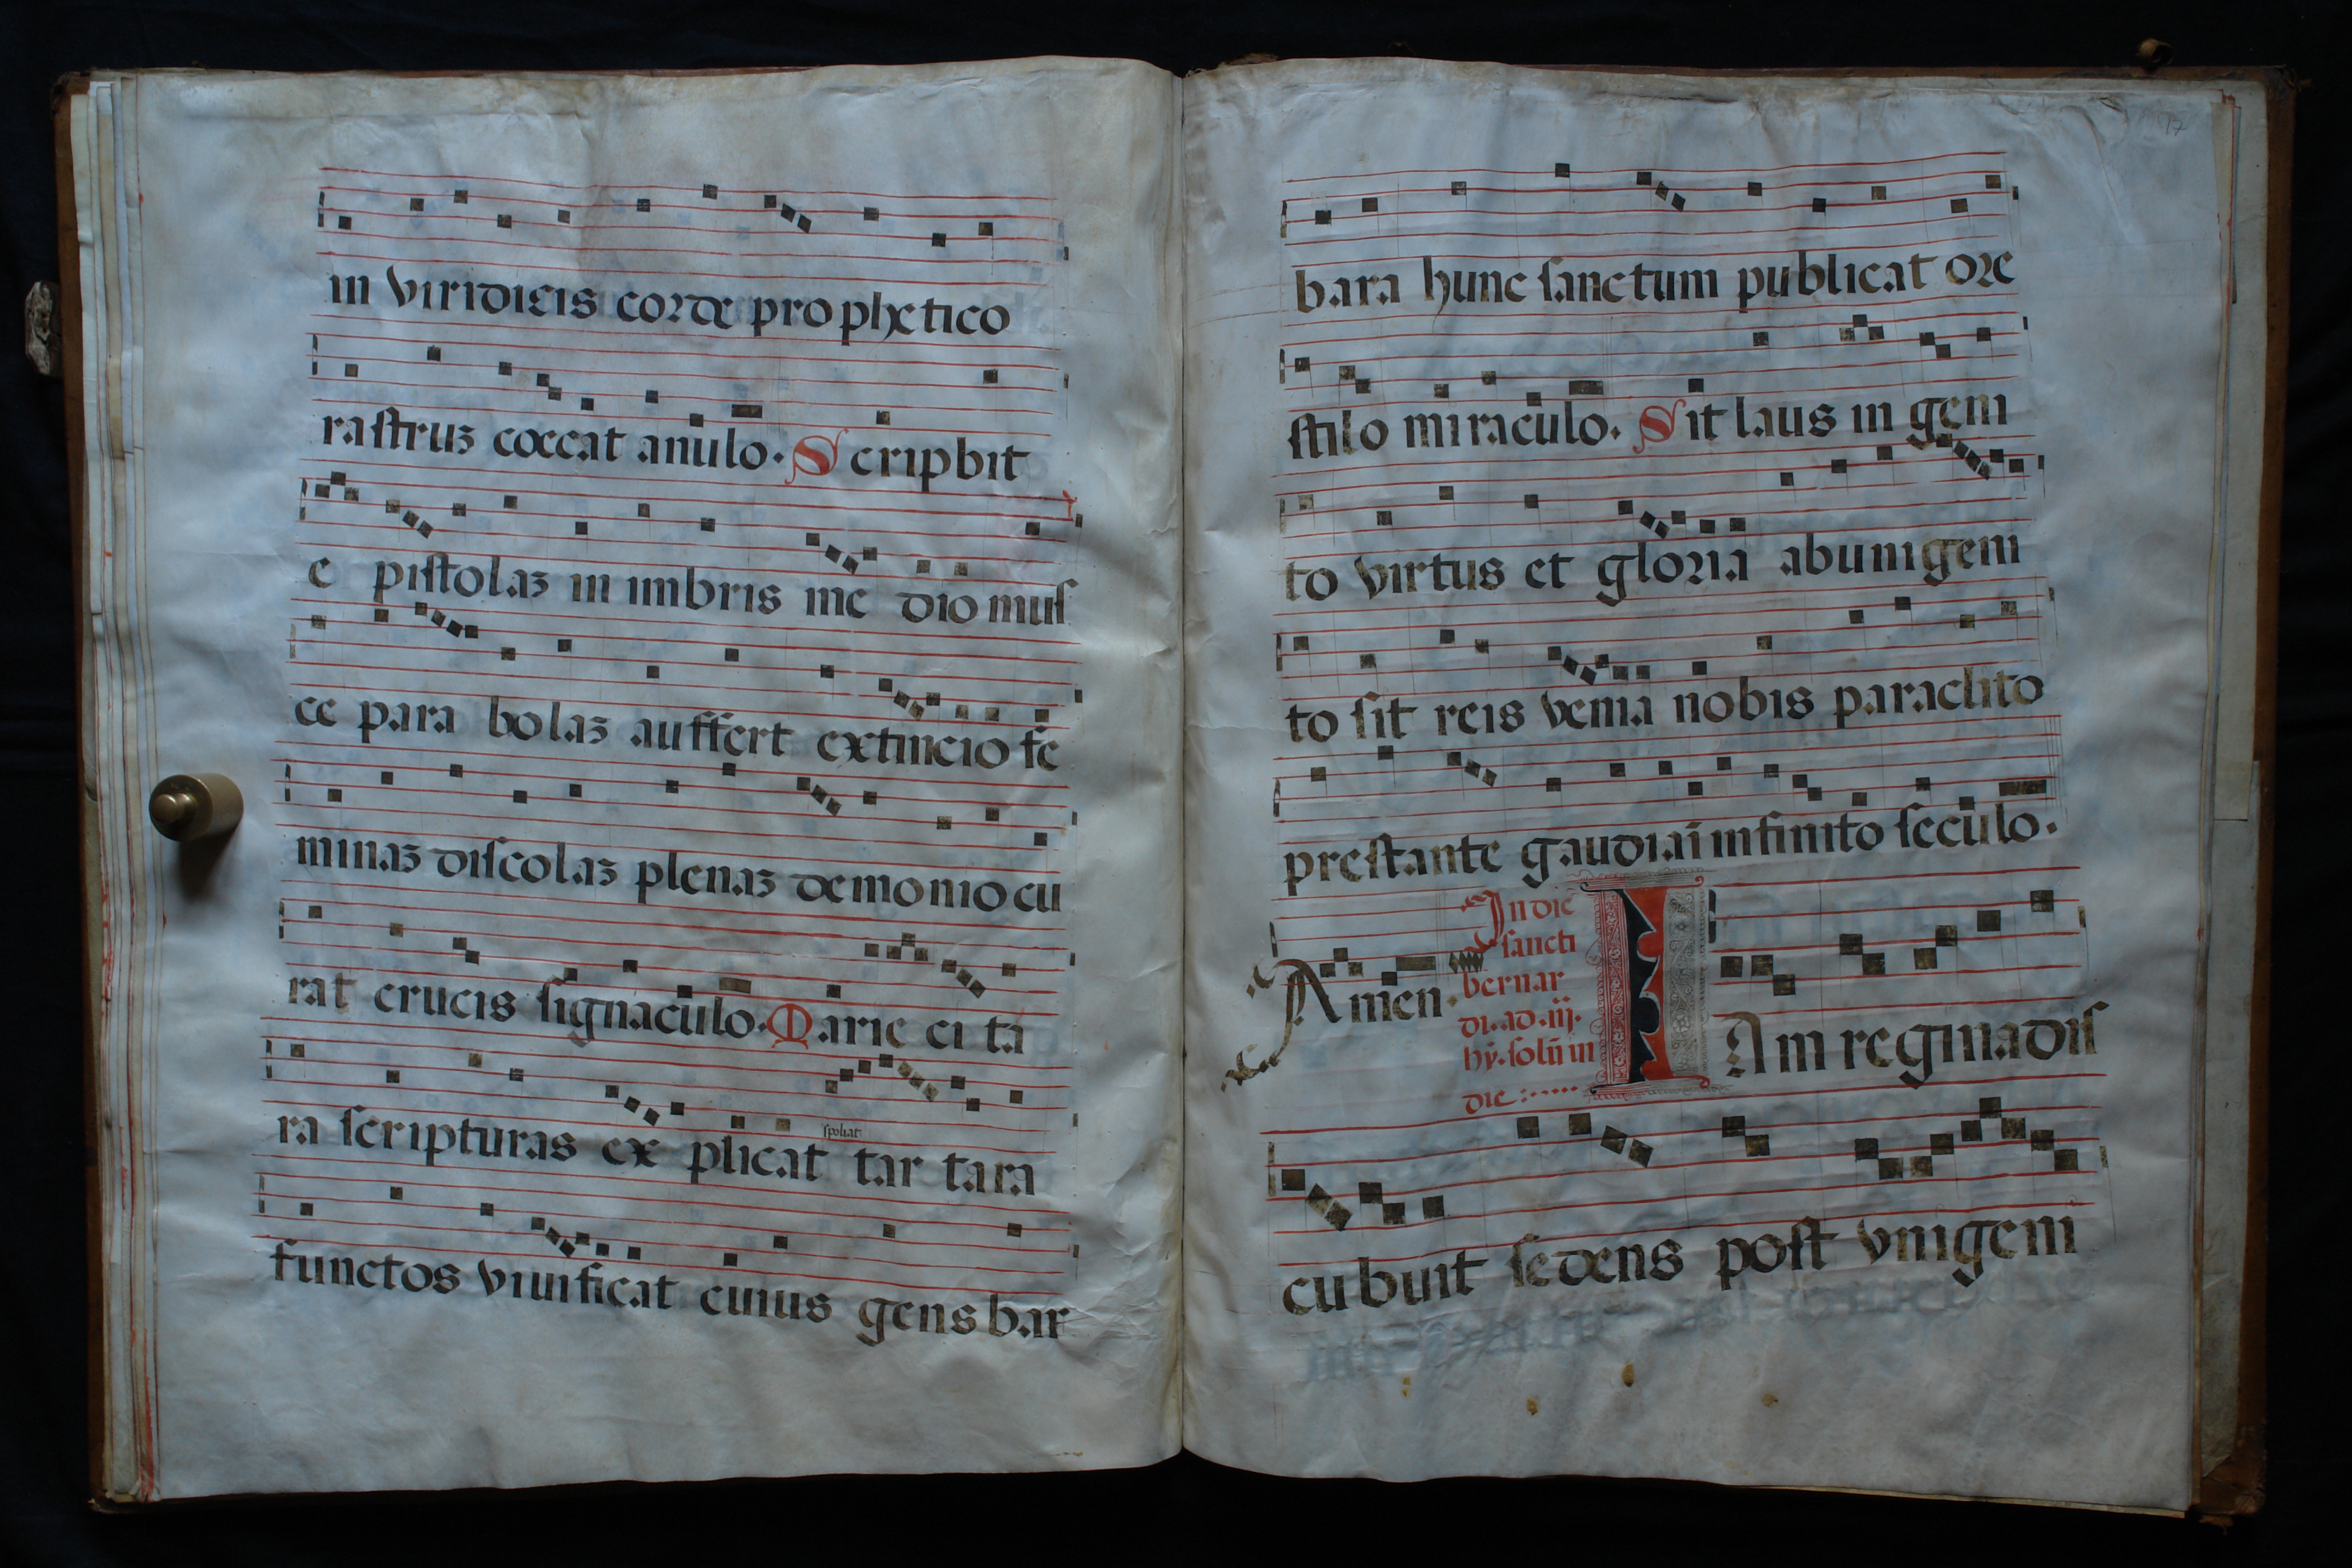 in viridicis corde prophetico
rastruz coccat anulo. Scripbit
e pistolaz in imbris me dio mus
ce para bolaz auffert extincio fe
minaz discolaz plenaz demonio cu
rat crucis signaculo. Marie ci ta
ra scripturas ex plicat tar tara
spoliat
functos viuificat cuius gens bar
17
bara hunc sanctum publicat ore
stilo miraculo. Sit laus in geni
to virtus et gloria ab unigeni
to sit reis venia nobis paraclito
prestante gaudiaī infinito seculo.
Amen.
In die
sancti
bernar
di. ad. iij.
hỹ. solū in
die :......
IAm regina dis
cubuit sedens post vnigeni